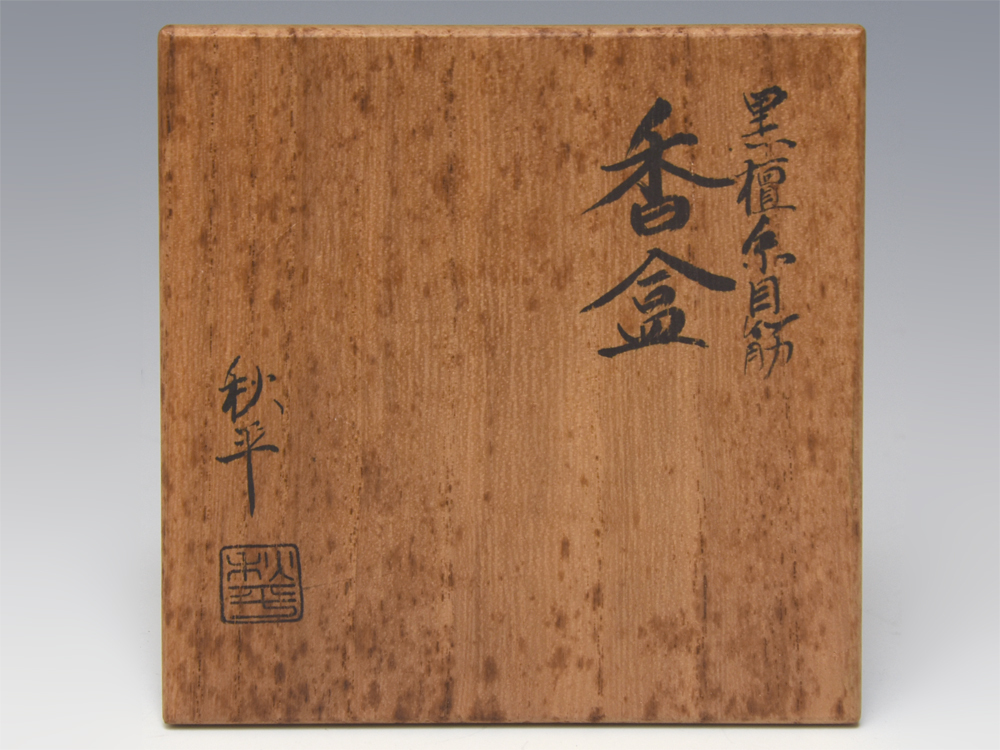 黒檀糸目筋
香盒
秋平
秋平